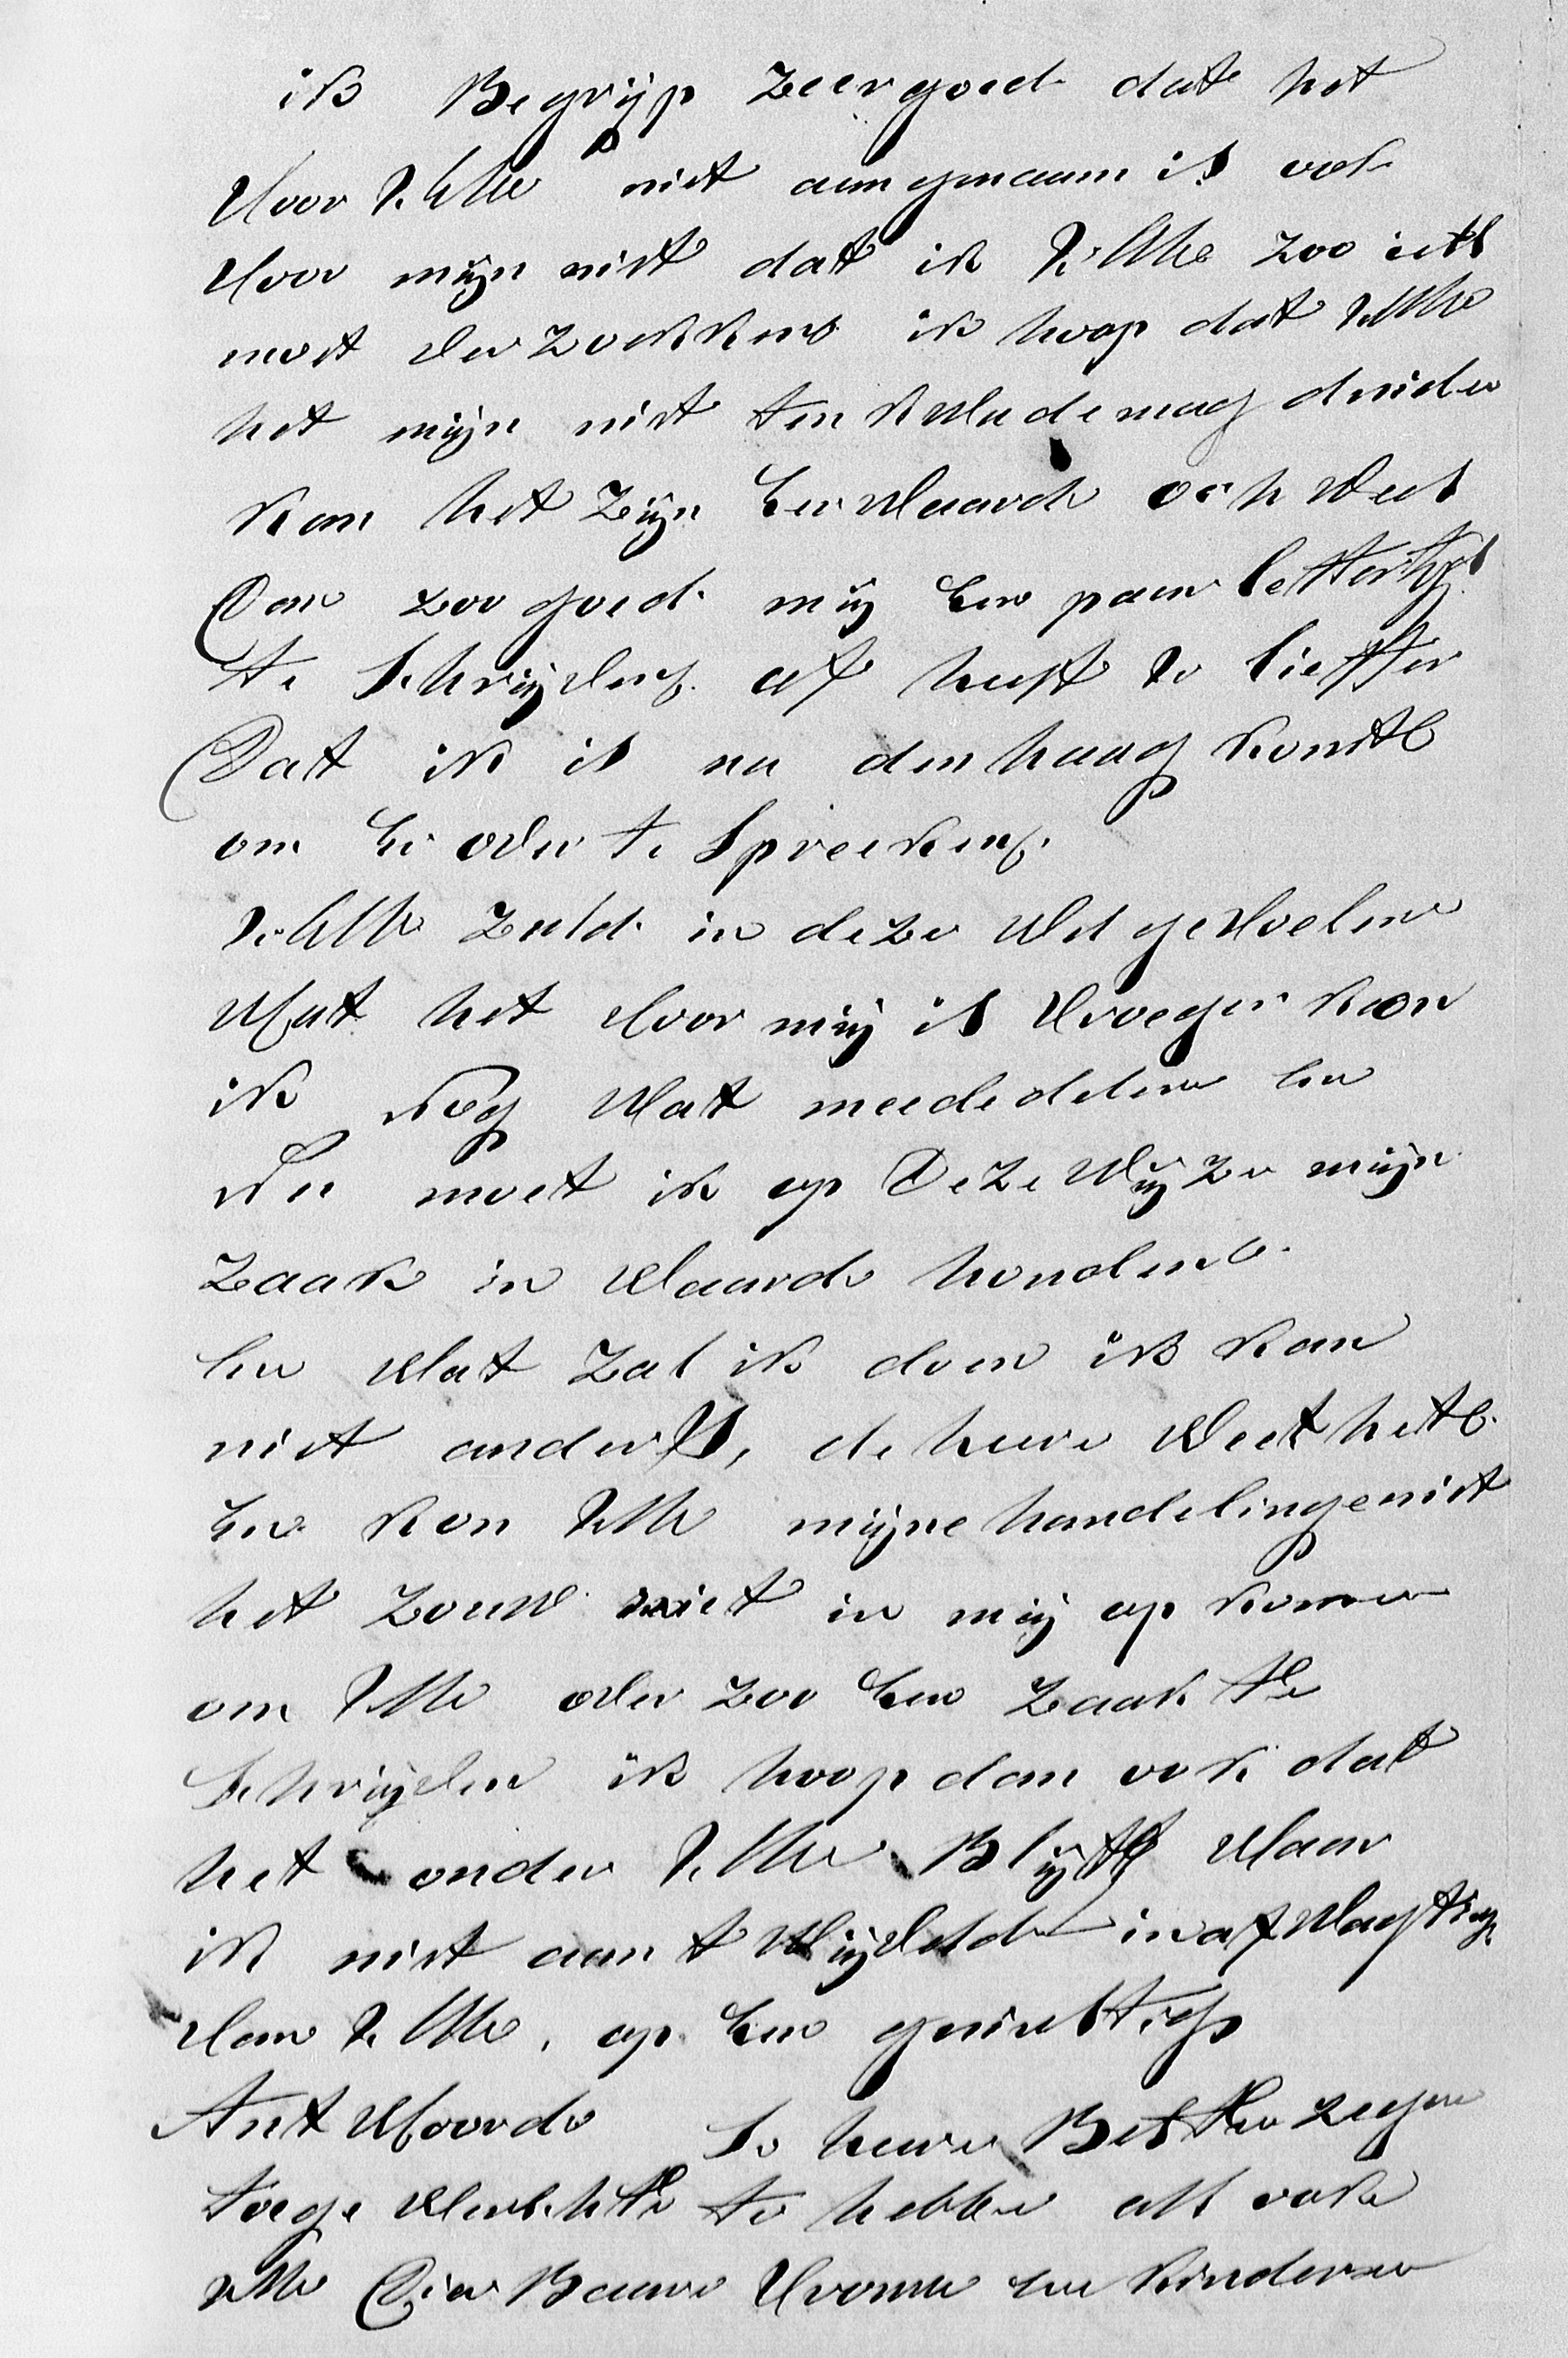 ik Begrijp zeer goed dat het
Voor UWe niet aangenaam is ook
Voor mijn niet dat ik UWe zoo iets
moet verzoekken ik hoop dat UWe
het mijn niet ten kwade mag duiden
kan het zijn Eerwaarde och Wees
Dan zoo goed mij Een paar lettertjes
te Schrijven of heeft U liefster
Dat ik is na den haag komt
om Er over te Spreeken
UWe zuld in deze Wel gevoelen
Wat het Voor mij is Vroeger kon
ik Nog Wat meededelen En
Nu moet ik op Deze Wijze mijn
zaak in Waarde houden
En Wat zal ik doen ik kan
niet anders, de heere Weet het
En kon UWe mijne handelinge niet
het zouw niet in mij op komen
om UWe over zoo Een zaak te
Schrijven ik hoop dan ook dat
het onder UWe Blijft Waar
ik niet aan twijveld in afwagting
Van UWe, op Een gunstigs
Antwoord S heere Beste zegen
toege Wenschte te hebbe als ook
UWe Dierbaare Vrouw En Kinderen